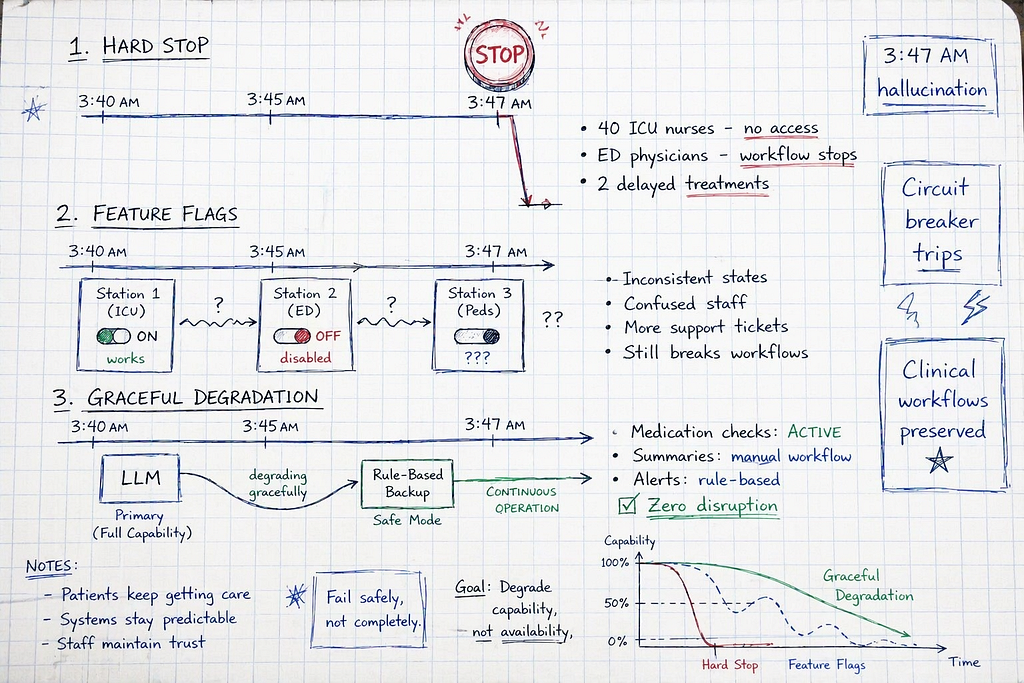 1. HARD STOP
STOP
3:40 AM
3:45 AM
3:47 AM
• 40 ICU nurses – no access
• ED physicians – workflow stops
• 2 delayed treatments
2. FEATURE FLAGS
3:40 AM
3:45 AM
3:47 AM
Station 1
(ICU)
ON
works
?
Station 2
(ED)
OFF
disabled
?
Station 3
(Peds)
???
??
• Inconsistent states
• Confused staff
• More support tickets
• Still breaks workflows
3. GRACEFUL DEGRADATION
3:40 AM
3:45 AM
3:47 AM
LLM
Primary
(Full Capability)
degrading
gracefully
Rule-Based
Backup
Safe Mode
CONTINUOUS
OPERATION
• Medication checks: ACTIVE
• Summaries: manual workflow
• Alerts: rule-based
☑ Zero disruption
3:47 AM
hallucination
Circuit
breaker
trips
Clinical
workflows
preserved
NOTES:
– Patients keep getting care
– Systems stay predictable
– Staff maintain trust
Fail safely,
not completely.
Goal: Degrade
capability,
not availability,
Capability
100%
50%
0%
Graceful
Degradation
Hard Stop
Feature Flags
Time